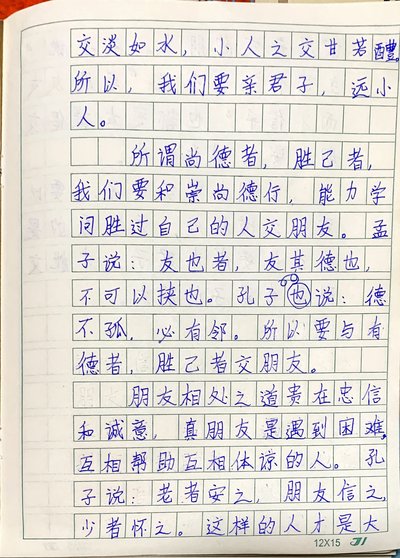 交淡如水，小人之交甘若醴。
所以，我们要亲君子，远小
人。
所谓尚德者，胜己者，
我们要和崇尚德行，能力学
问胜过自己的人交朋友。孟
子说：友也者，友其德也，
不可以挟也。孔子也说：德
不孤，必有邻。所以要与有
德者，胜己者交朋友。
朋友相处之道贵在忠信
和诚意，真朋友是遇到困难，
互相帮助互相体谅的人。孔
子说：老者安之，朋友信之，
少者怀之。这样的人才是大
12X15